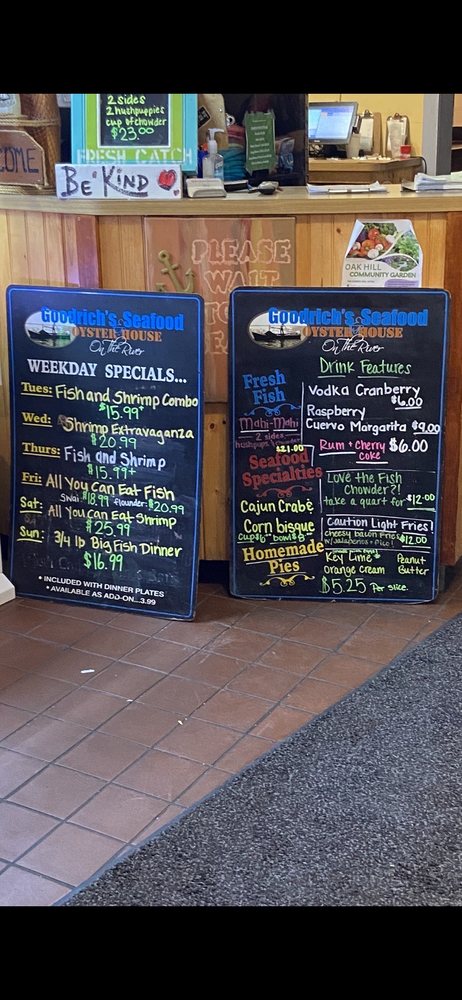 2 sides
2 hushpuppies
cup of chowder
$23.00
FRESH CATCH
COME
BE KIND
PLEASE
WAIT
OAK HILL
COMMUNITY GARDEN
Goodrich's Seafood
OYSTER HOUSE
On The River
WEEKDAY SPECIALS...
Tues: Fish and Shrimp Combo
$15.99+
Wed: Shrimp Extravaganza
$20.99
Thurs: Fish and Shrimp
$15.99+
Fri: All You Can Eat Fish
Swai: $18.99 flounder: $20.99
Sat: All you Can Eat Shrimp
$25.99
Sun: 3/4 lb Big Fish Dinner
$16.99
* INCLUDED WITH DINNER PLATES
* AVAILABLE AS ADD-ON...3.99
Goodrich's Seafood
OYSTER HOUSE
On The River
Fresh
Fish
Mahi-Mahi
2 sides
hushpups, chowder
$21.00
Seafood
Specialties
Cajun Crab &
Corn bisque
Cup $6 bowl $8
Homemade
Pies
Drink Features
Vodka Cranberry
$6.00
Raspberry
Cuervo Margarita $9.00
Rum + Cherry $6.00
coke
Love the Fish
Chowder?!
take a quart for $12.00
Caution Light Fries!
cheesy bacon fries $12.00
w/ Jalapenos + Pico!
Key Lime * Peanut
Orange Cream Butter
$5.25 Per slice.